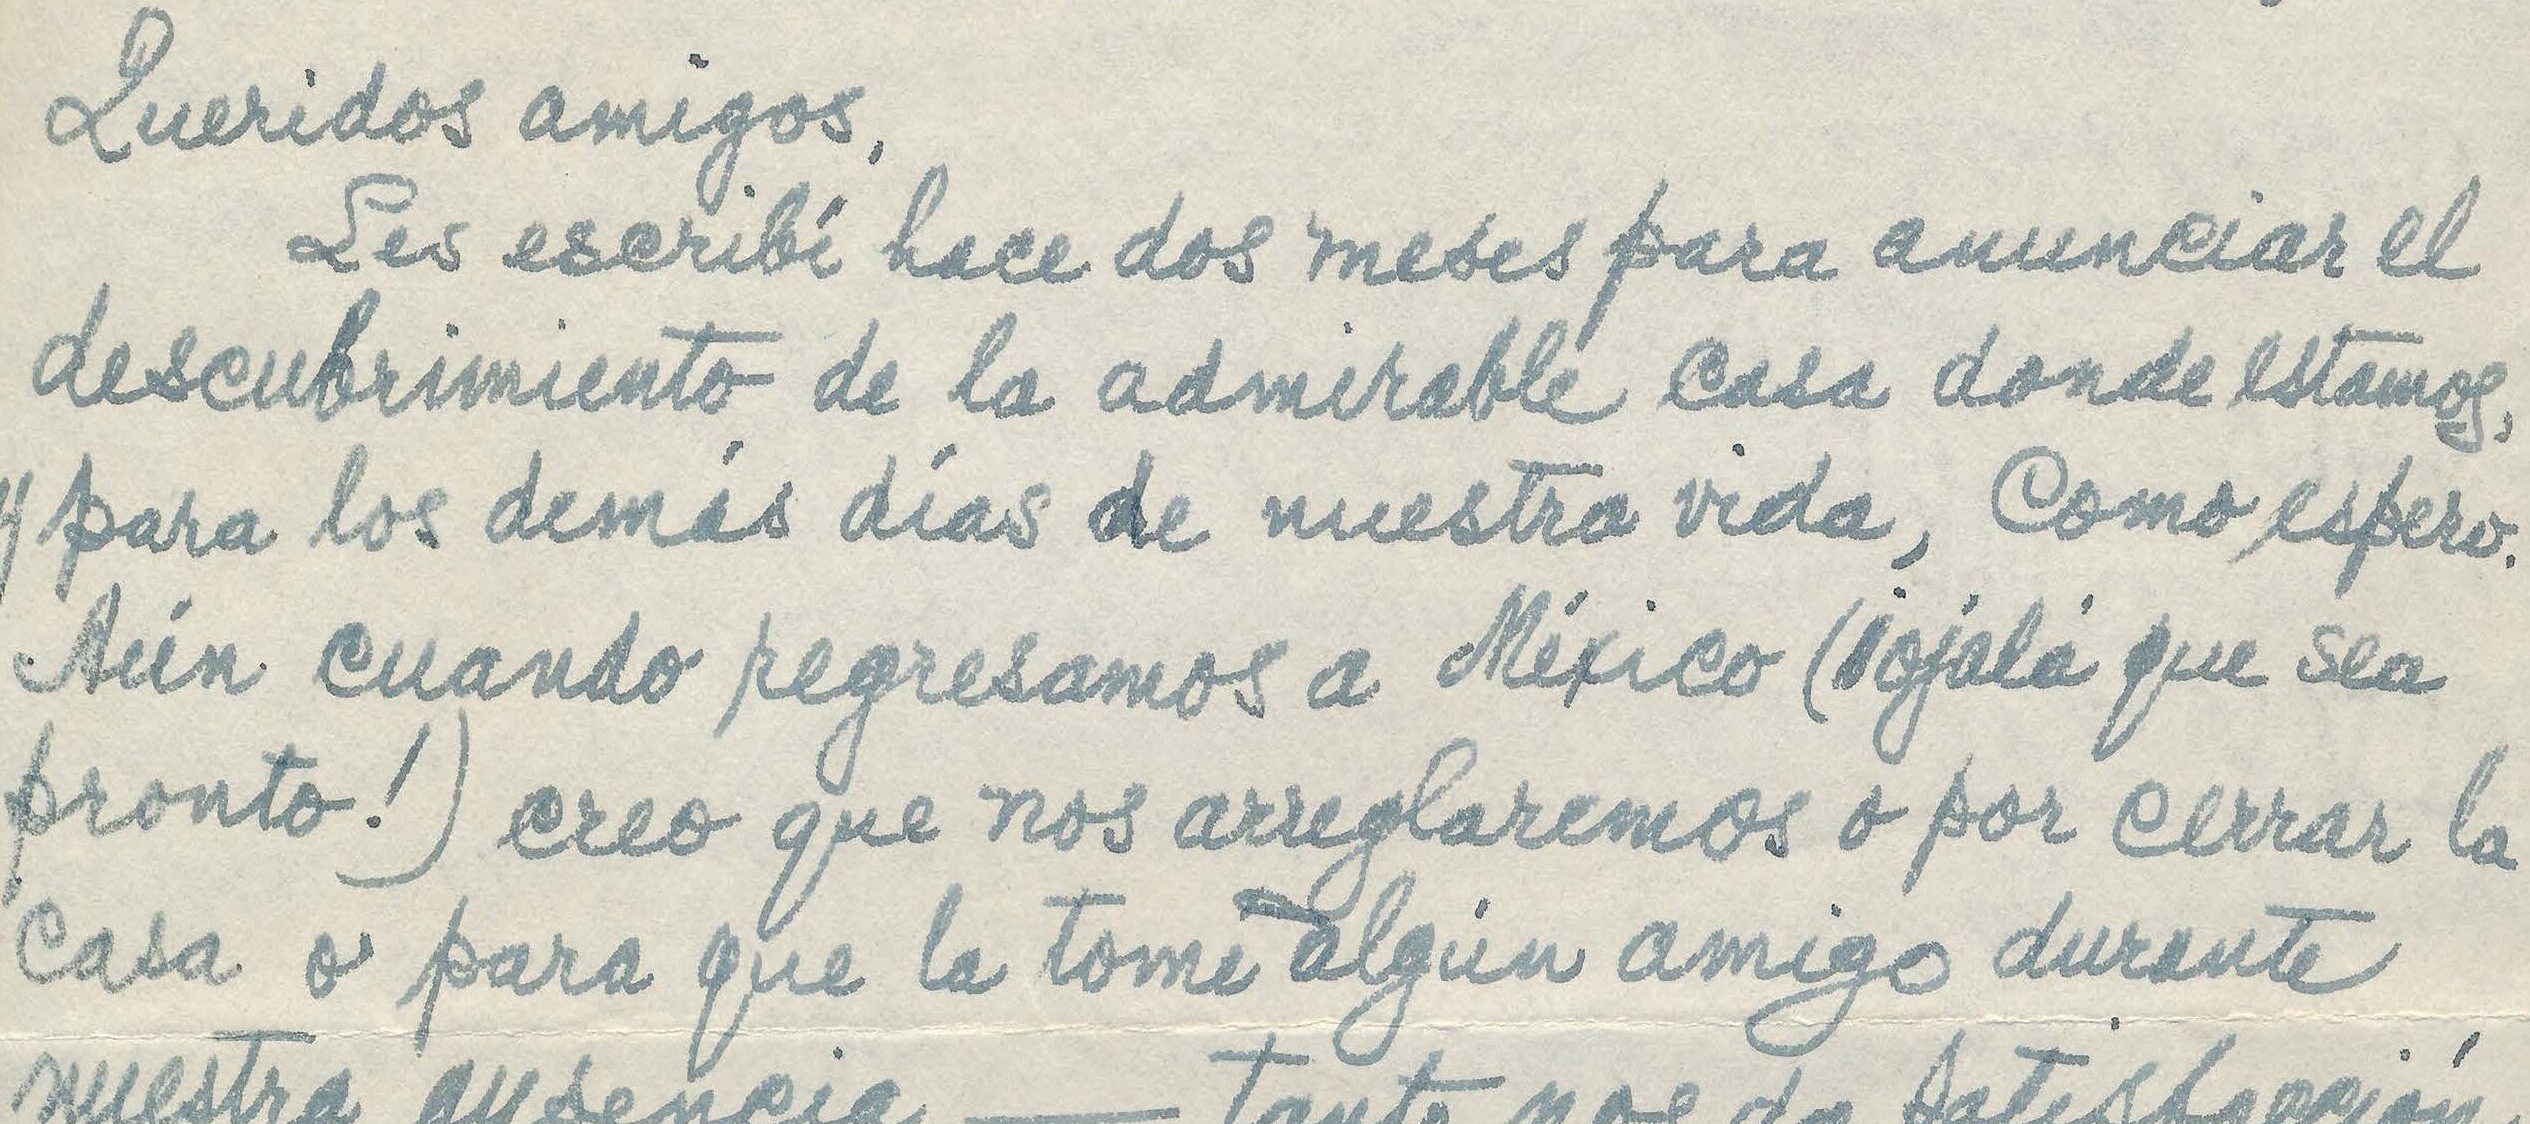 Queridos amigos,
Les escribí hace dos meses para anunciar el
descubrimiento de la admirable casa donde estamos,
y para los demás días de nuestra vida, como espero.
Aún cuando regresamos a México (¡ojalá que sea
pronto!) creo que nos arreglaremos o por cerrar la
casa o para que la tome algún amigo durante
nuestra ausencia — tanto nos da satisfacción